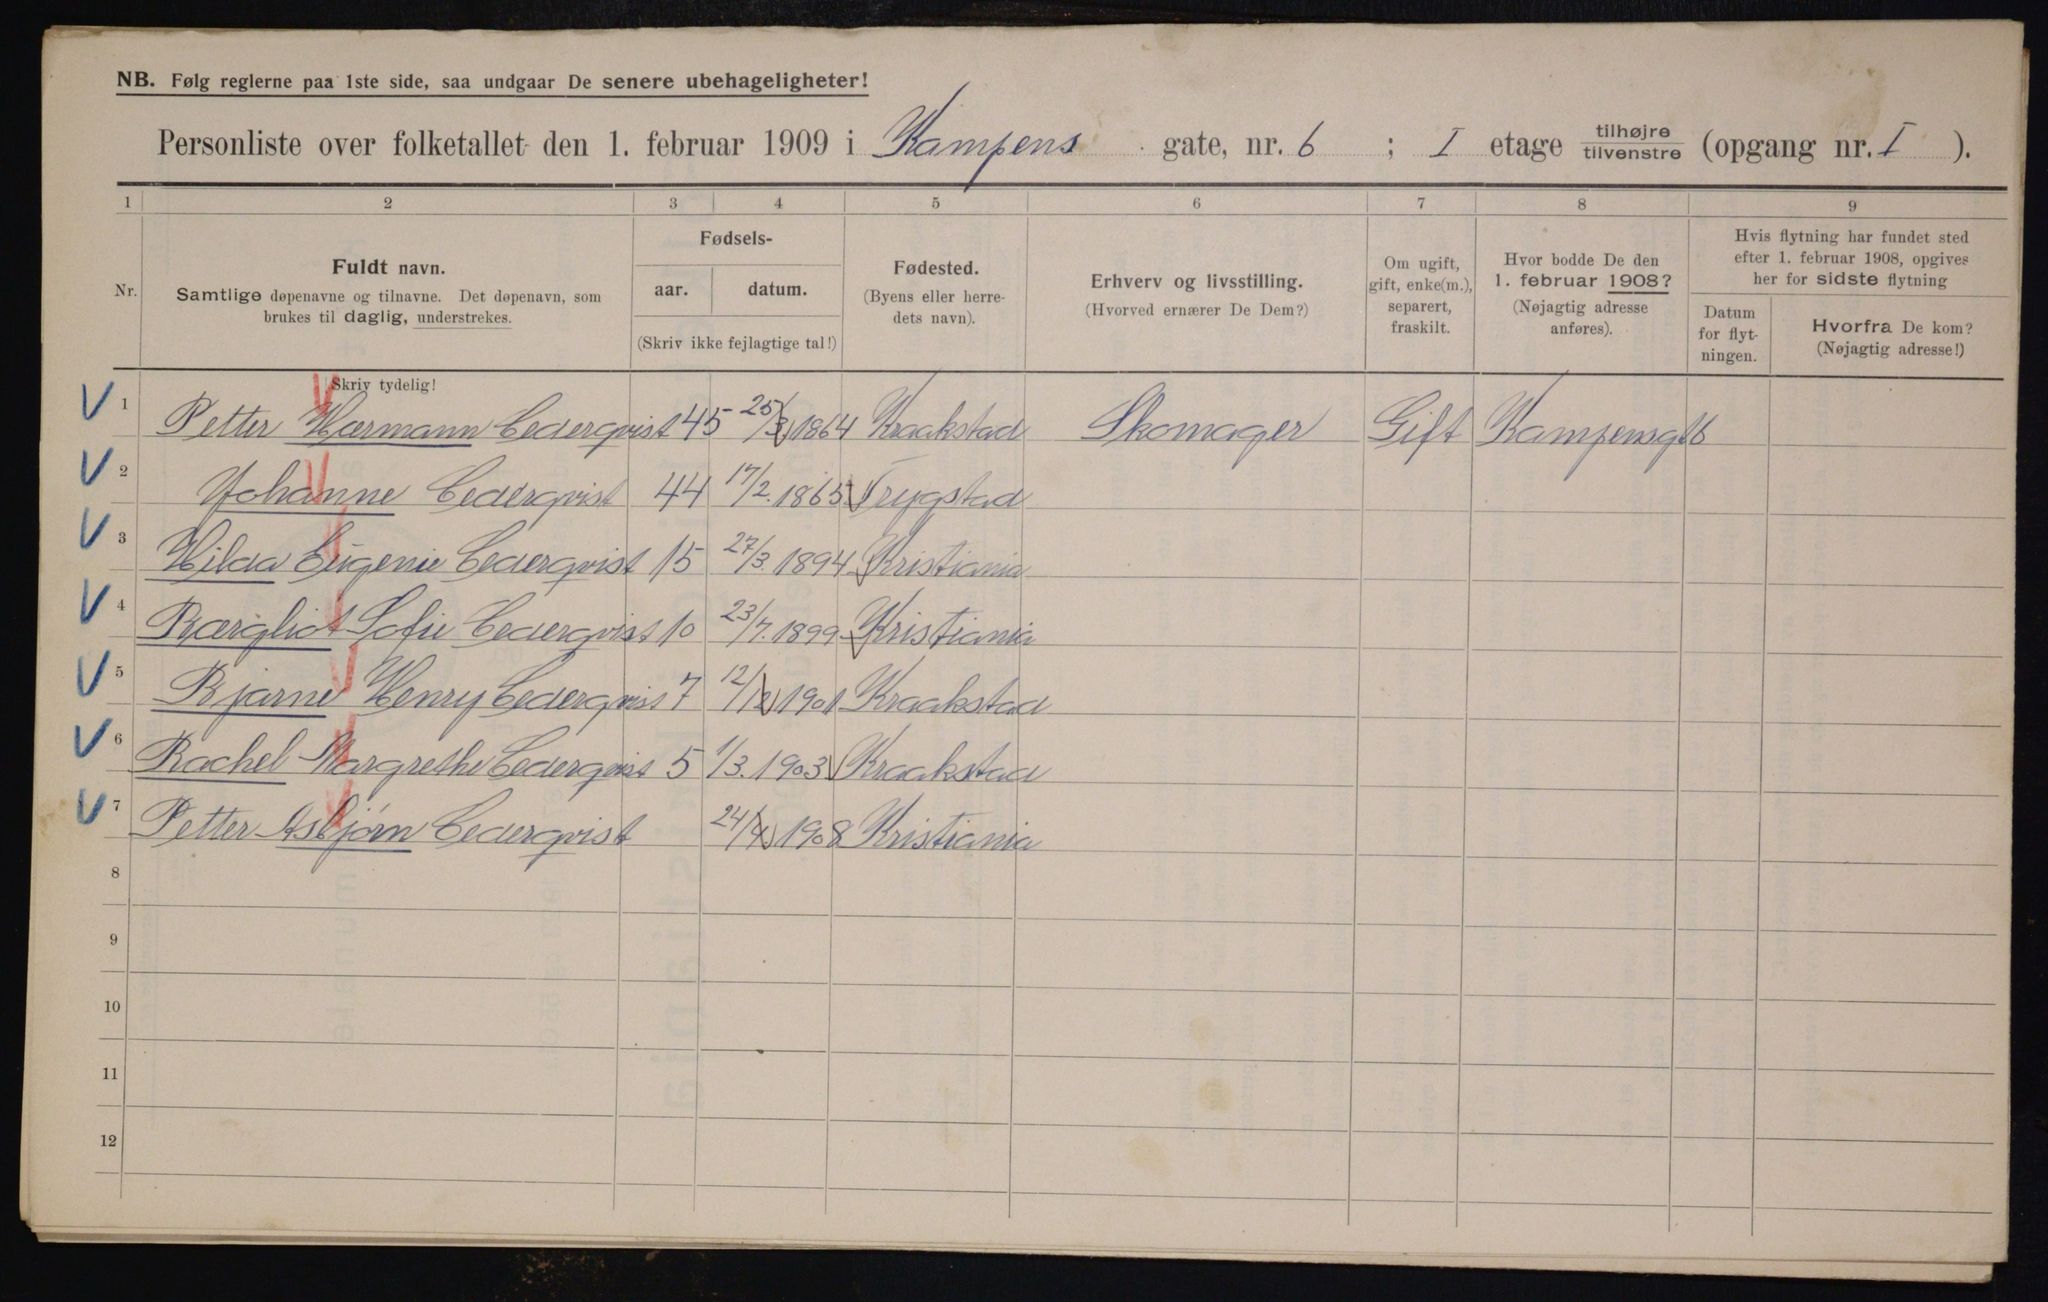 NB. Følg reglerne paa 1ste side, saa undgaar De senere ubehageligheter!
Personliste over folketallet den 1. februar 1909 i Kampens gate, nr. 6 ; I etage tilhøjre/tilvenstre (opgang nr. I ).
1 2 3 4 5 6 7 8 9
Nr.
Fuldt navn.
Samtlige døpenavne og tilnavne. Det døpenavn, som
brukes til daglig, understrekes.
Fødsels-
aar. datum.
(Skriv ikke fejlagtige tal!)
Fødested.
(Byens eller herre-
dets navn).
Erhverv og livsstilling.
(Hvorved ernærer De Dem?)
Om ugift,
gift, enke(m.),
separert,
fraskilt.
Hvor bodde De den
1. februar 1908?
(Nøjagtig adresse
anføres).
Hvis flytning har fundet sted
efter 1. februar 1908, opgives
her for sidste flytning
Datum
for flyt-
ningen.
Hvorfra De kom?
(Nøjagtig adresse!)
Skriv tydelig!
1 Petter Hærmann Cederqvist 45 25/3 1864 Kraakstad Skomager Gift Kampensgt 6
2 Johanne Cederqvist 44 17/2. 1865 Trygstad
3 Hilda Eugenie Cederqvist 15 27/3. 1894 Kristiania
4 Bærgliot Sofie Cederqvist 10 23/7. 1899 Kristiania
5 Bjarne Henry Cederqvist 7 12/12 1901 Kraakstad
6 Rachel Margrethe Cederqvist 5 1/3. 1903 Kraakstad
7 Petter Asbjørn Cederqvist 24/4 1908 Kristiania
8
9
10
11
12